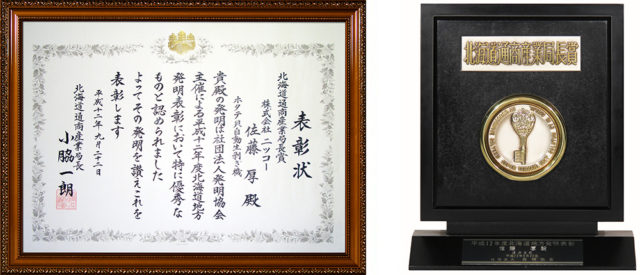 表彰状
北海道通商産業局長賞
株式会社 ニッコー
佐藤 厚 殿
ホタテ貝自動生剥き機
貴殿の発明は社団法人発明協会
主催による平成十二年度北海道地方
発明表彰において特に優秀な
ものと認められました
よってその発明を讃えこれを
表彰します
平成十二年九月二十二日
北海道通商産業局長
小脇 一朗
北海道通商産業局長賞
平成12年度北海道地方発明表彰
佐藤 厚 殿